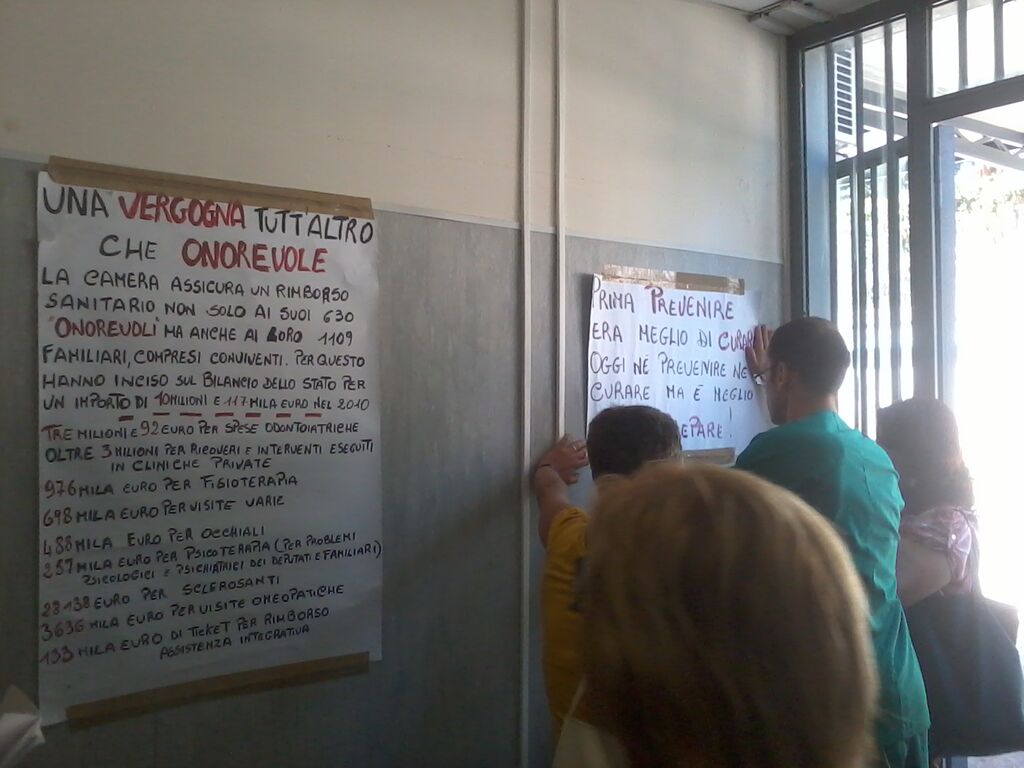 UNA VERGOGNA TUTT'ALTRO
CHE ONOREVOLE
LA CAMERA ASSICURA UN RIMBORSO
SANITARIO NON SOLO AI SUOI 630
"ONOREVOLI" MA ANCHE AI LORO 1109
FAMILIARI, COMPRESI CONVIVENTI. PER QUESTO
HANNO INCISO SUL BILANCIO DELLO STATO PER
UN IMPORTO DI 10 MILIONI E 117 MILA EURO NEL 2010
TRE MILIONI E 92 EURO PER SPESE ODONTOIATRICHE
OLTRE 3 MILIONI PER RICOVERI E INTERVENTI ESEGUITI
IN CLINICHE PRIVATE
976 MILA EURO PER FISIOTERAPIA
698 MILA EURO PER VISITE VARIE
488 MILA EURO PER OCCHIALI
257 MILA EURO PER PSICOTERAPIA (PER PROBLEMI
PSICOLOGICI E PSICHIATRICI DEI DEPUTATI E FAMILIARI)
28138 EURO PER SCLEROSANTI
3636 MILA EURO PER VISITE OMEOPATICHE
133 MILA EURO DI TICKET PER RIMBORSO
ASSISTENZA INTEGRATIVA
PRIMA PREVENIRE
ERA MEGLIO DI CURARE
OGGI NE PREVENIRE NE
CURARE MA E MEGLIO
EPARE!